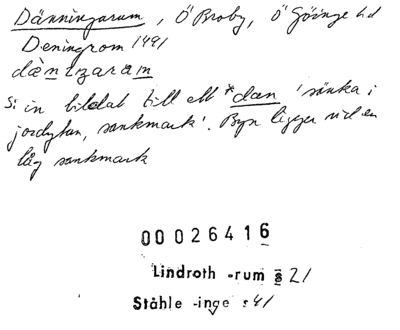 Dänningarum, Ö Broby, Ö Göinge hd
Deningrom 1491
dæ̀nıŋarȧm
Si in bildat till ett *dæn 'sänka i
jordytan, sankmark'. Byn ligger vid en
låg sankmark
00 026416
Lindroth -rum s 21
Ståhle -inge s 41